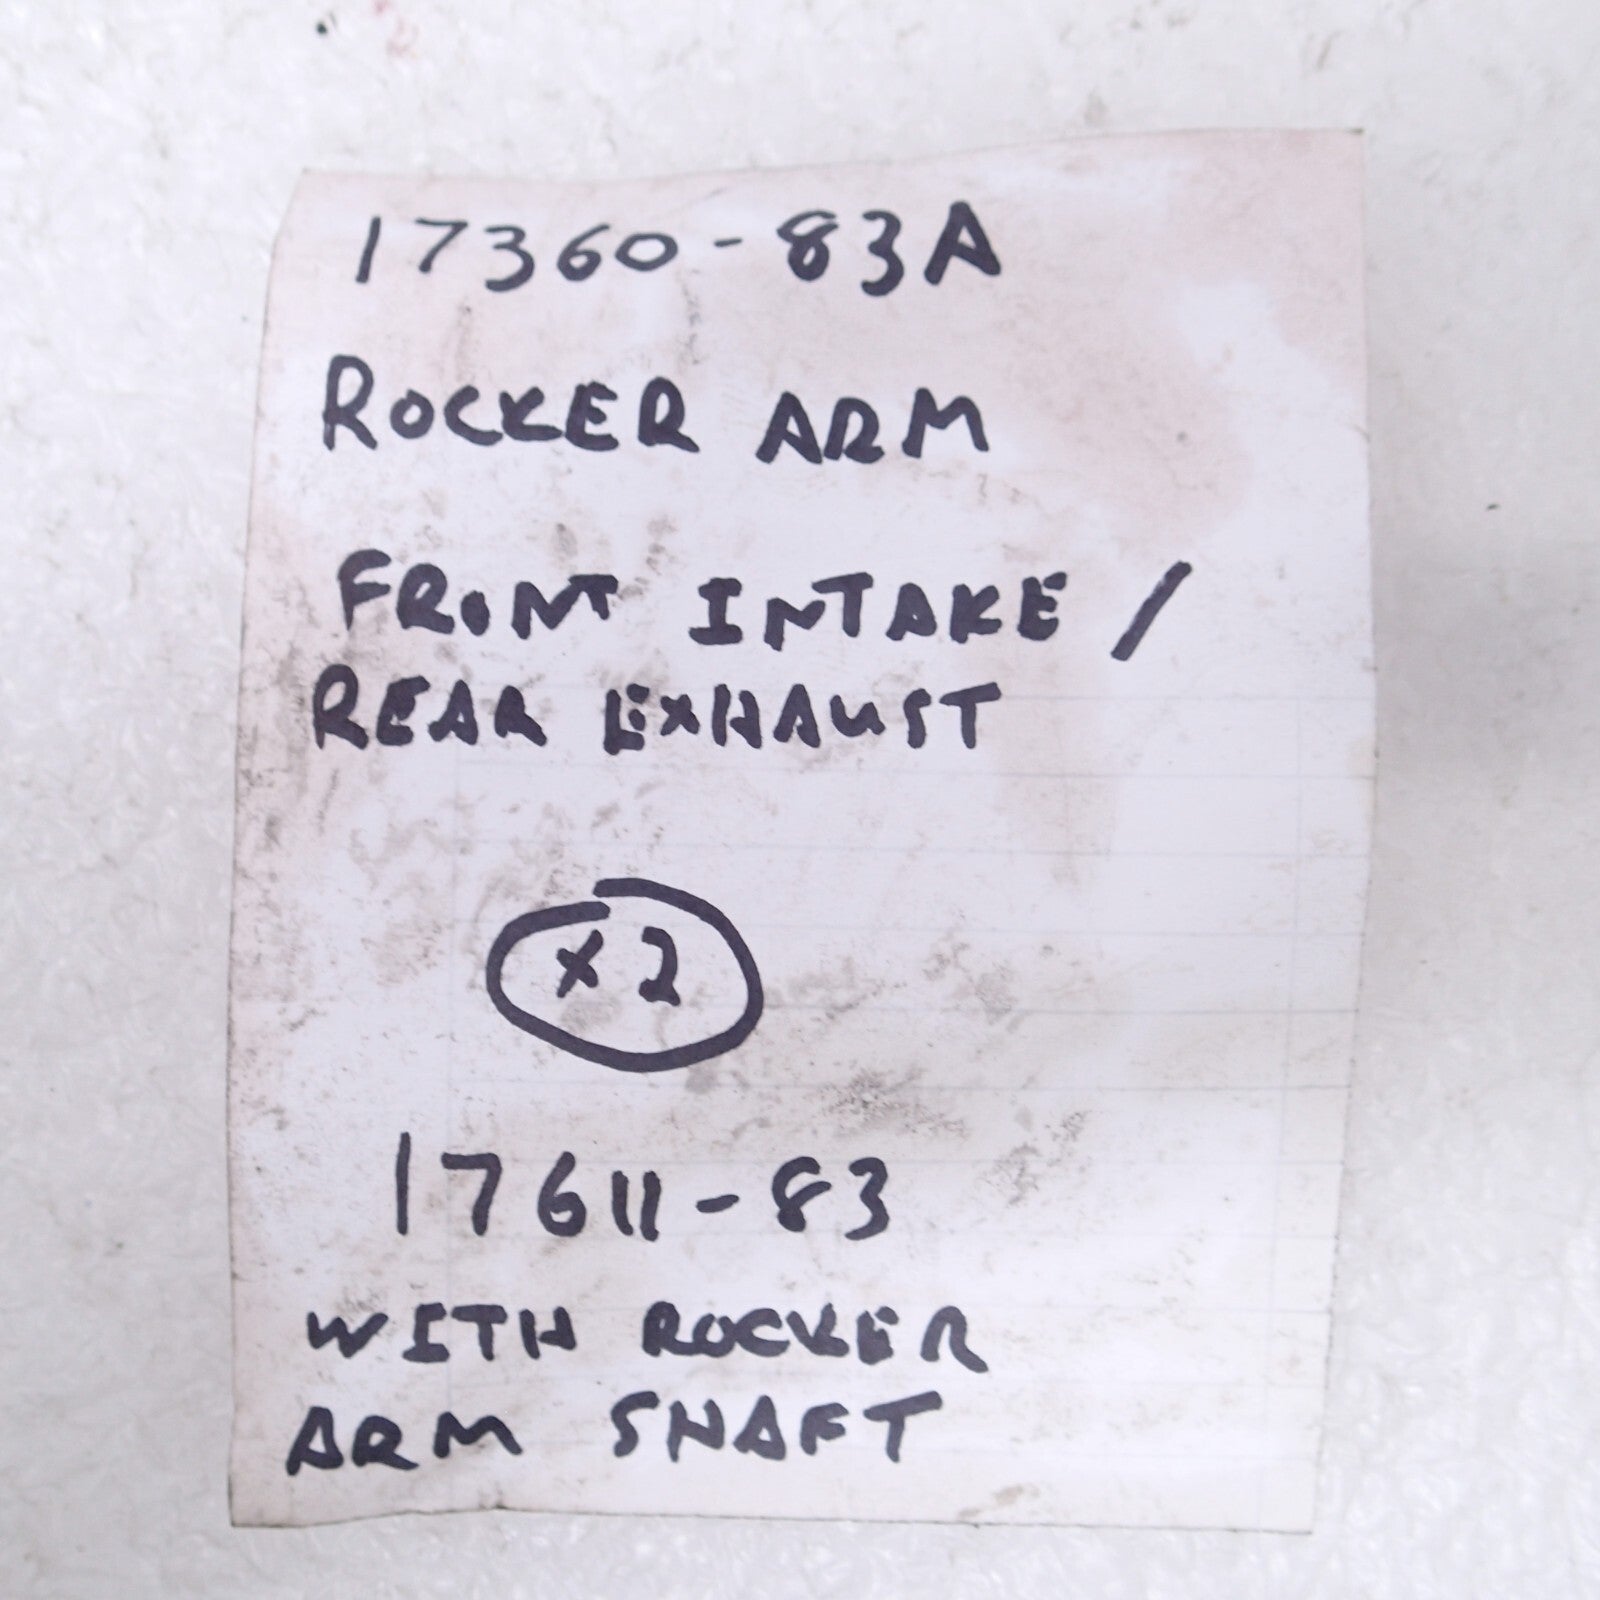 17360-83A
ROCKER ARM
FRONT INTAKE /
REAR EXHAUST
x2
17611-83
WITH ROCKER
ARM SHAFT